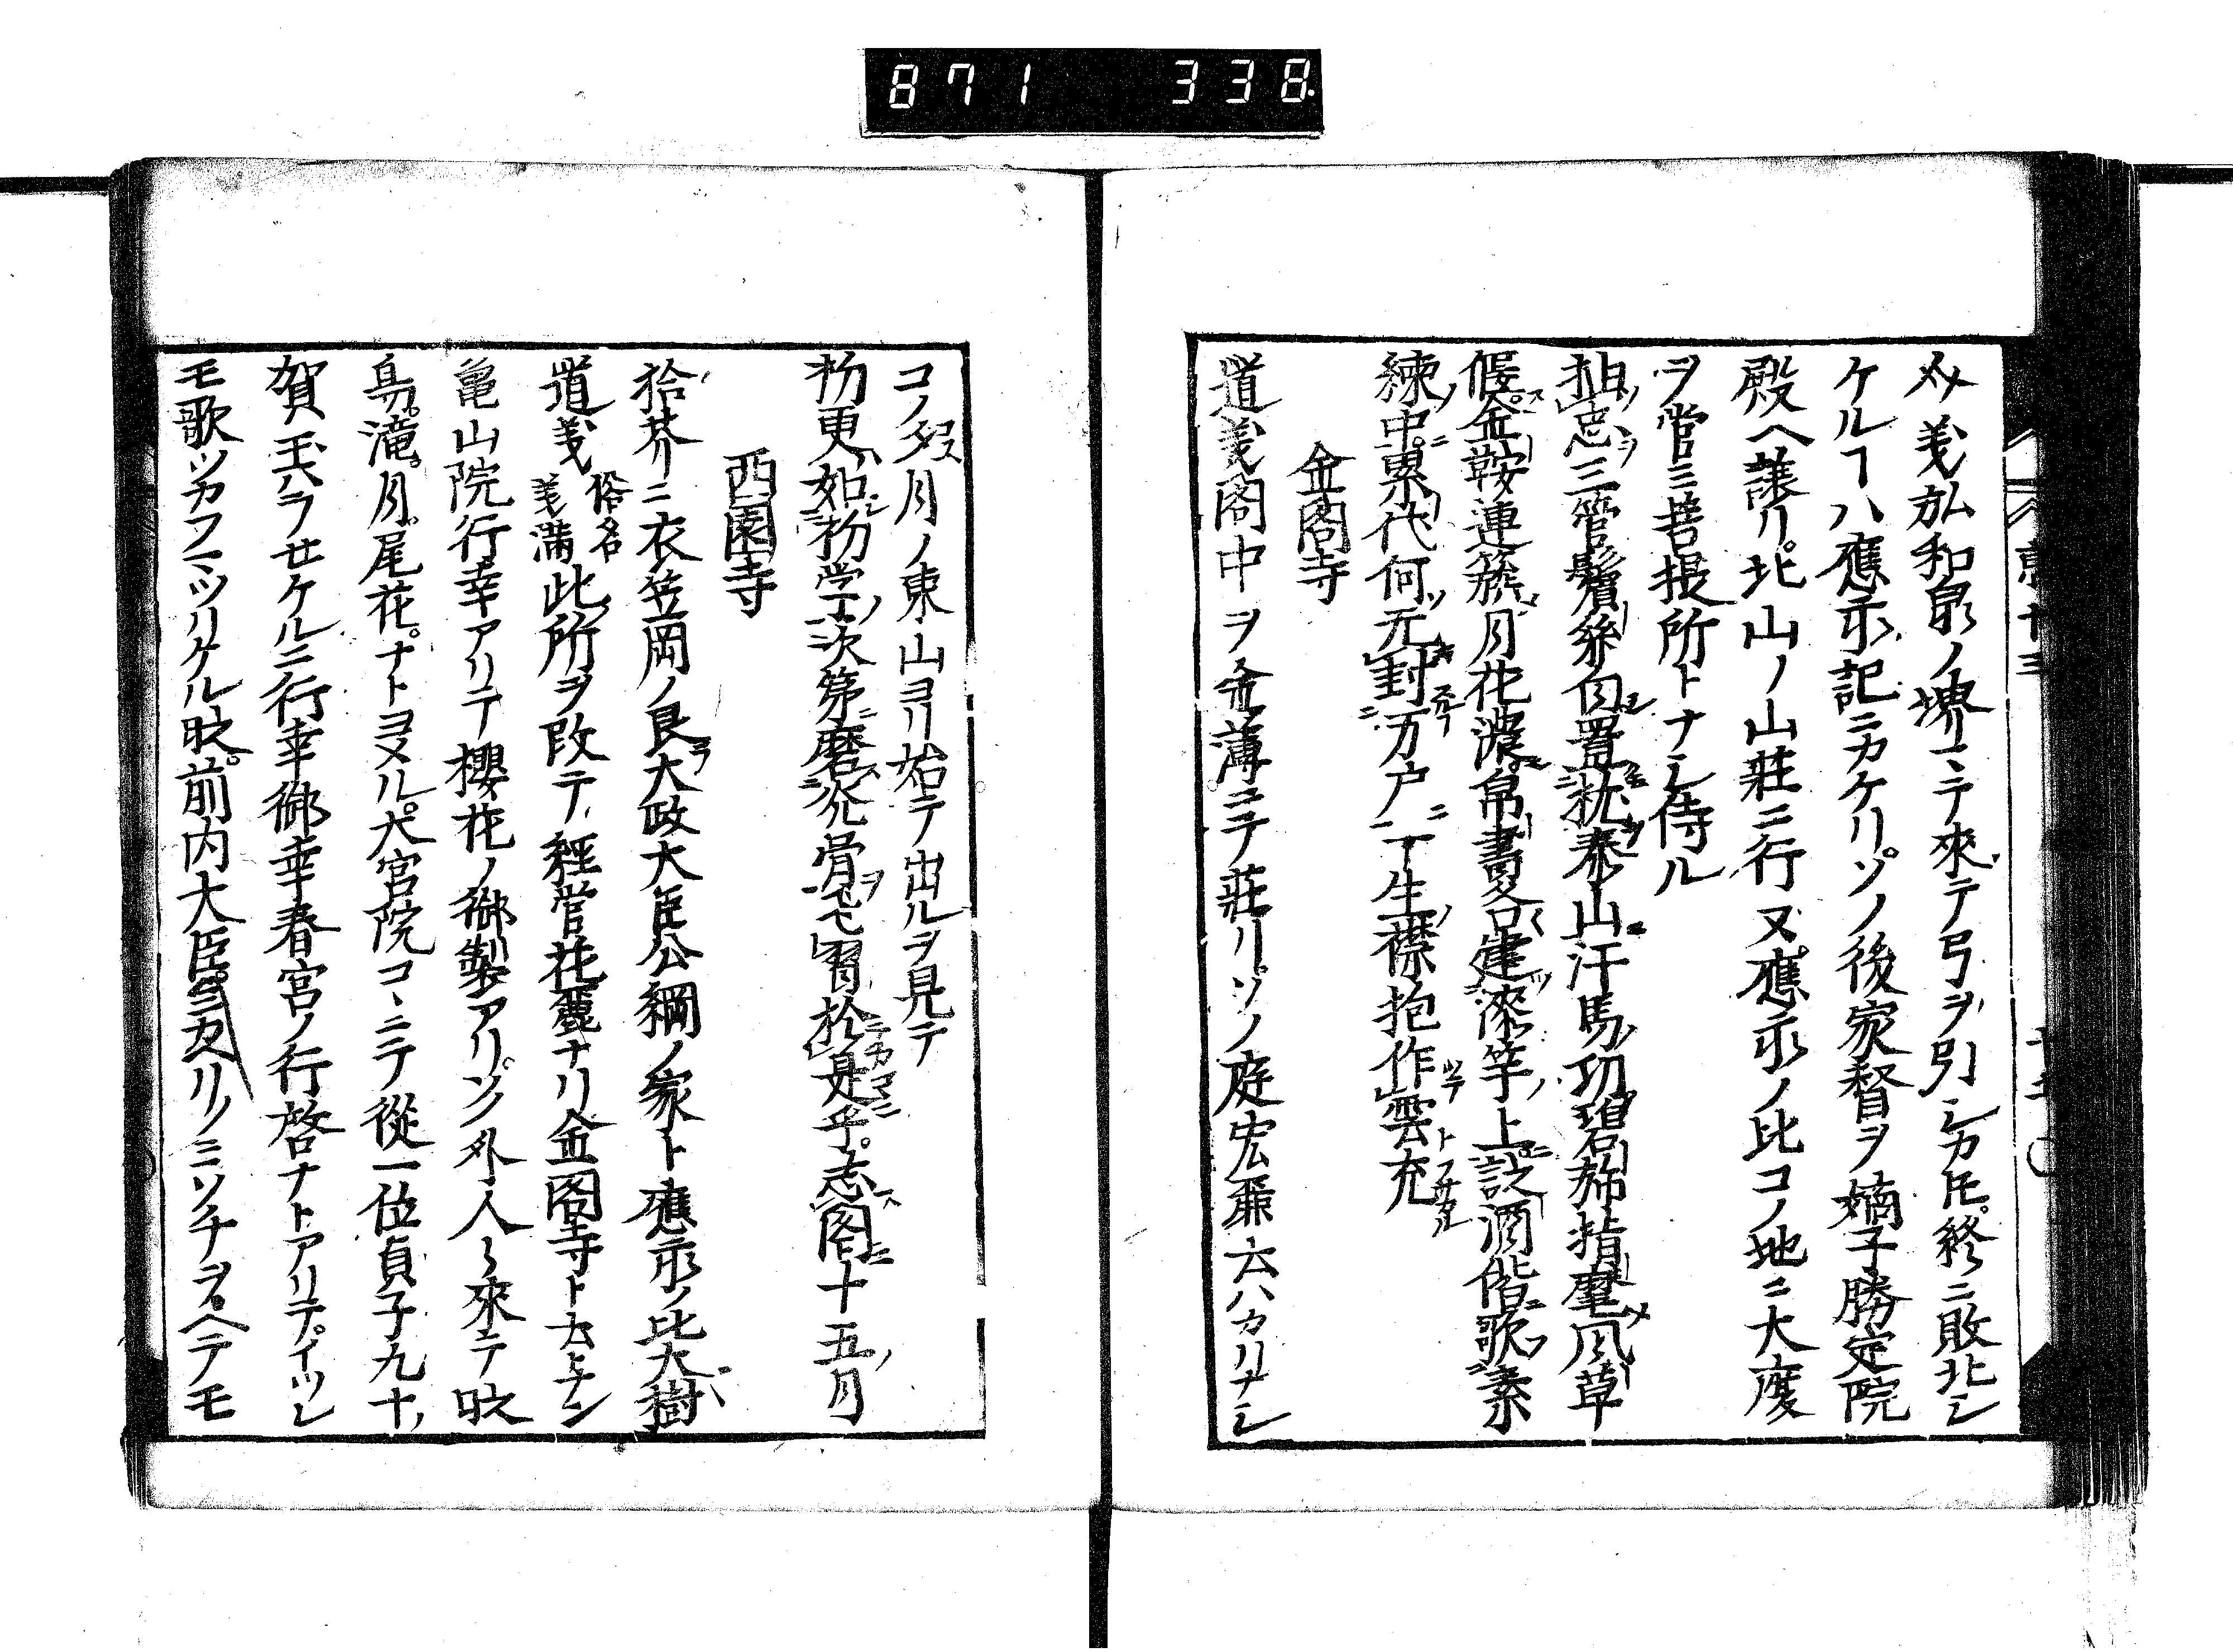 871 338
メ義弘和泉ノ堺ニテ來テ弓ヲ引シカ𪜈終ニ敗北シ
ケルヿハ應永記ニカケリソノ後家督ヲ嫡子勝定院
殿ヘ讓リ北山ノ山莊ニ行又應永ノ比コノ地ニ大廈
ヲ営ミ菩提所トナシ侍ル
三管鬢絲自置枕泰山汗馬功碧 指麾風草
偃金鞍連簇月花濃帛書名建漆竿上設酒偕歌素
練中累代何元封万戸一生襟抱作雲充
金閣寺
道義閣中ヲ金薄ニテ莊リソノ庭宏麗云ハカリナシ
コノ夕月ノ東山ヨリ始テ出ルヲ見テ
物更如物学次第磨 骨 習於是乎志閣十五月
西園寺
拾芥ニ衣笠岡ノ良大政大臣公綱ノ家ト應永ノ比大樹
道義俗名義満此所ヲ改テ經営花麗ナリ金閣寺ト云トナン
亀山院行幸アリテ櫻花ノ御製アリソノ外人々來テ昿
鳥滝月尾花ナトヨメル大宮院コヽニテ從一位貞子九十ノ
賀玉ハラセケルニ行幸御幸春宮ノ行啓ナトアリテイツレ
モ歌ツカフマツリケル昿前内大臣 カハリノミソチヲヘテモ